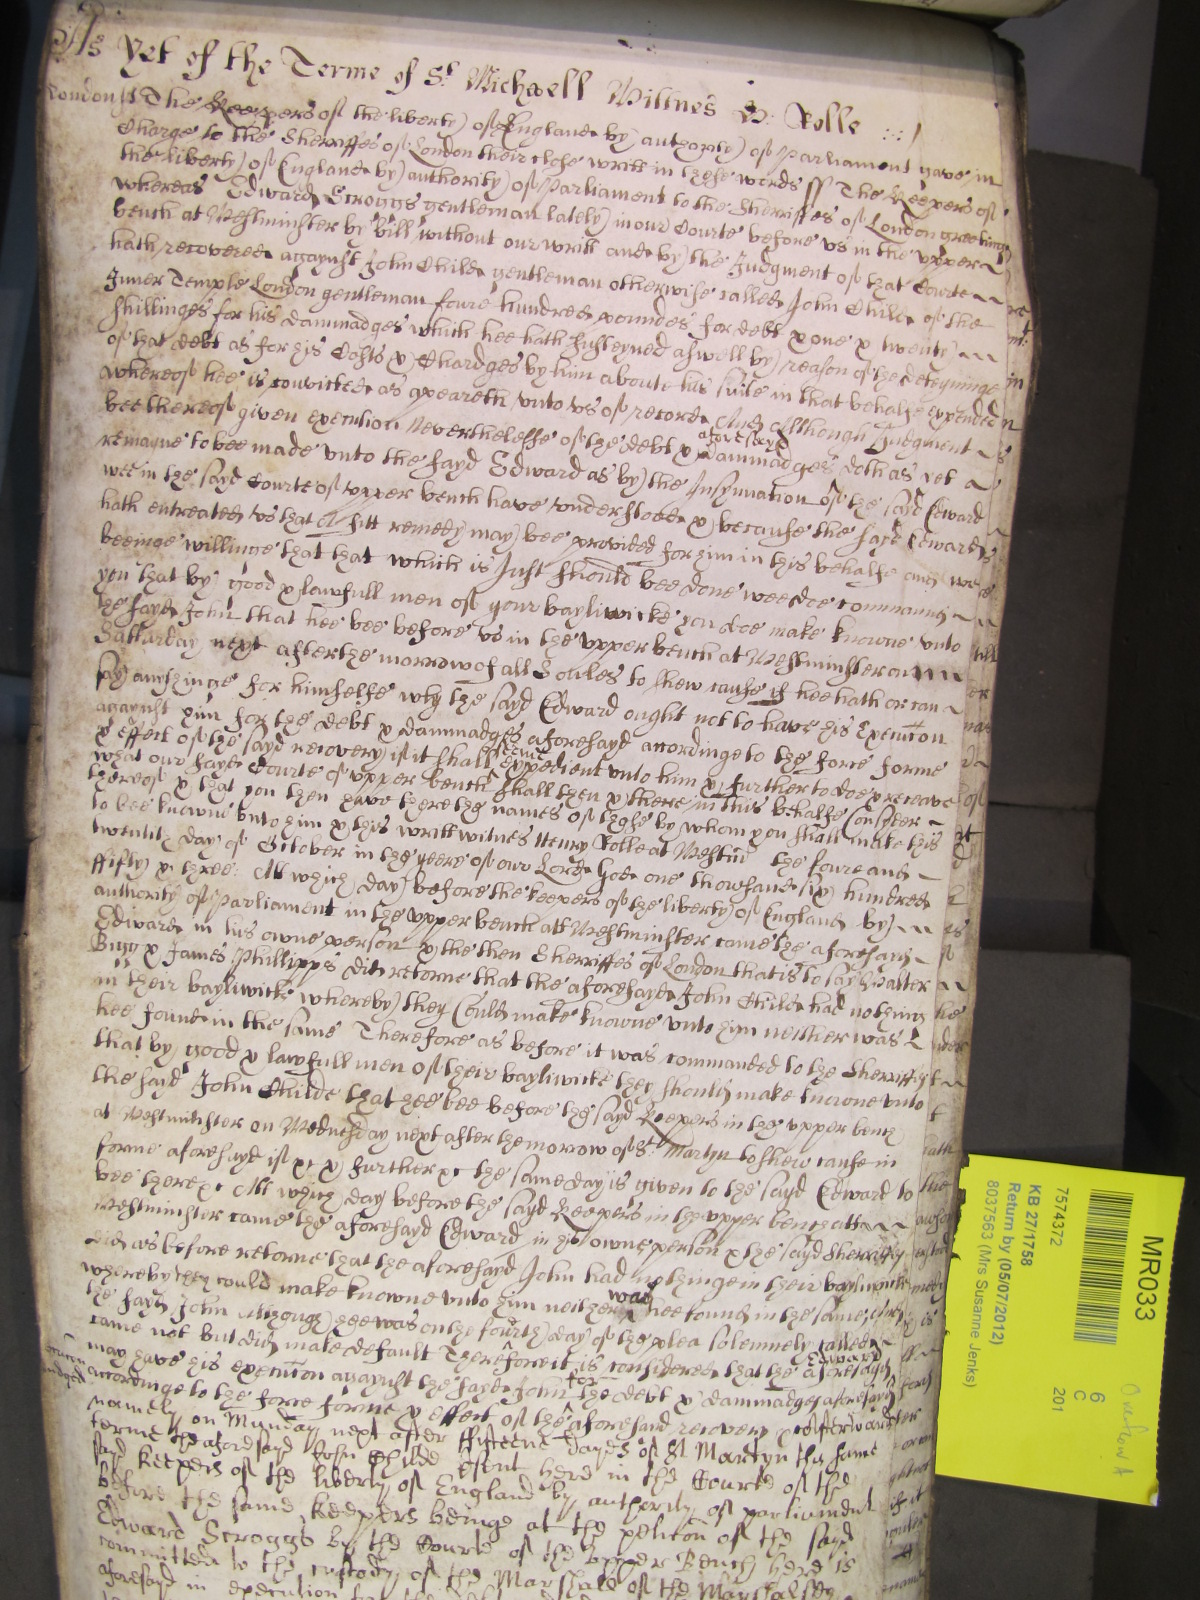 As yet of the Terme of St Michaell Wittnes H: Rolle
London ss The Keepers of the liberty of England by authority of Parliament gave in
Charge to the Sherriffes of London their close writt in these words ss The Keepers of
the liberty of England by authority of Parliament to the Sherriffes of London greeting
whereas Edward Scroggs gentleman lately in our Courte before us in the upper
bench at Westminster by Bill without our writt and by the Judgment of that Courte
hath recovered agaynst John Childe gentleman otherwise called John Child of the
Inner Temple London gentleman foure hundred poundes for debt & one & twenty
shillinges for his dammadges which hee hath susteyned aswell by reason of the deteyninge
of that debt as for his Costs & Chardges by him about his suite in that behalfe expended
whereof hee is convicted as appeareth unto us of record And Although Judgment
bee thereof given execution Nevertheless of the debt & dammadges aforesayd doth as yet
remayne to bee made unto the sayd Edward as by the Insynuation of the said Edward
wee in the sayd Courte of upper bench have understood & because the sayd Edward
hath entreated us that A fitt remedy may bee provided for him in this behalfe and wee
beeinge willinge that that which is Just should bee done wee doe command
you that by good & lawfull men of your bayliwicke you doe make knowne unto
the sayd John that hee bee before us in the upper bench at Westminster on
Satturday next after the morrow of all Soules to shew cause if hee hath or can
say anythinge for himselfe why the sayd Edward ought not to have his Execution
agaynst him for the debt & dammadges aforesayd accordinge to the force forme
& effect of the sayd recovery if it shall seeme expedient unto him & further to doe & receave
what our sayd Courte of upper bench shall then & there in this behalfe consider
thereof & that you then have there the names of those by whom you shall make this
to bee knowne unto him & this writt witnes Henry Rolle at Westm the foure and
twentith day of October in the yeere of our Lord God one thowsand six hundred
ffifty & three. Att which day before the keepers of the liberty of England by
authority of Parliament in the upper bench att Westminster came the aforesayd
Edward in his owne person & the then Sherriffes of London that is to say Walter
Bigg & James Phillipps did retorne that the aforesayd John Childe had nothing
in their bayliwicke whereby they could make knowne unto him neither was
hee found in the same Therefore as before it was commanded to the Sherriffes
that by good & lawfull men of their bayliwicke they should make knowne unto
the sayd John Childe that hee bee before the sayd Keepers in the upper bench
at Westminster on Wednesday next after the morrow of St Martyn to shew cause in
forme aforesayd if &c & further &c the same day is given to the sayd Edward to
bee there &c Att which day before the sayd Keepers in the upper bench att
Westminster came the aforesayd Edward in his owne person & the sayd Sherriffes
did as before retorne that the aforesayd John had nothinge in their bayliwicke
whereby they could make knowne unto him neither was hee found in the same And
the sayd John Although hee was on the fourth day of the plea solemnely called
came not but did make default Therefore it is considered that the aforesayd Edward
may have his execution agaynst the sayd John for the debt & dammadges aforesayd
accordinge to the force forme & effect of the aforesaid recovery &c Afterwards
namely on Munday next after ffifteene dayes of St Martyn this same
terme the aforesayd John Childe present here in the Courte of the
sayd keepers of the liberty of England by authority of parliament
before the same keepers beinge at the peticon of the sayd
Edward Scroggs by the Courte of the Upper Bench here is
committed to the custody of the Marshall of the Marshalsey
aforesayd in execution
MR033
7574372
KB 27/1758
Return by (05/07/2012)
8037563 (Mrs Susanne Jenks)
6
C
201